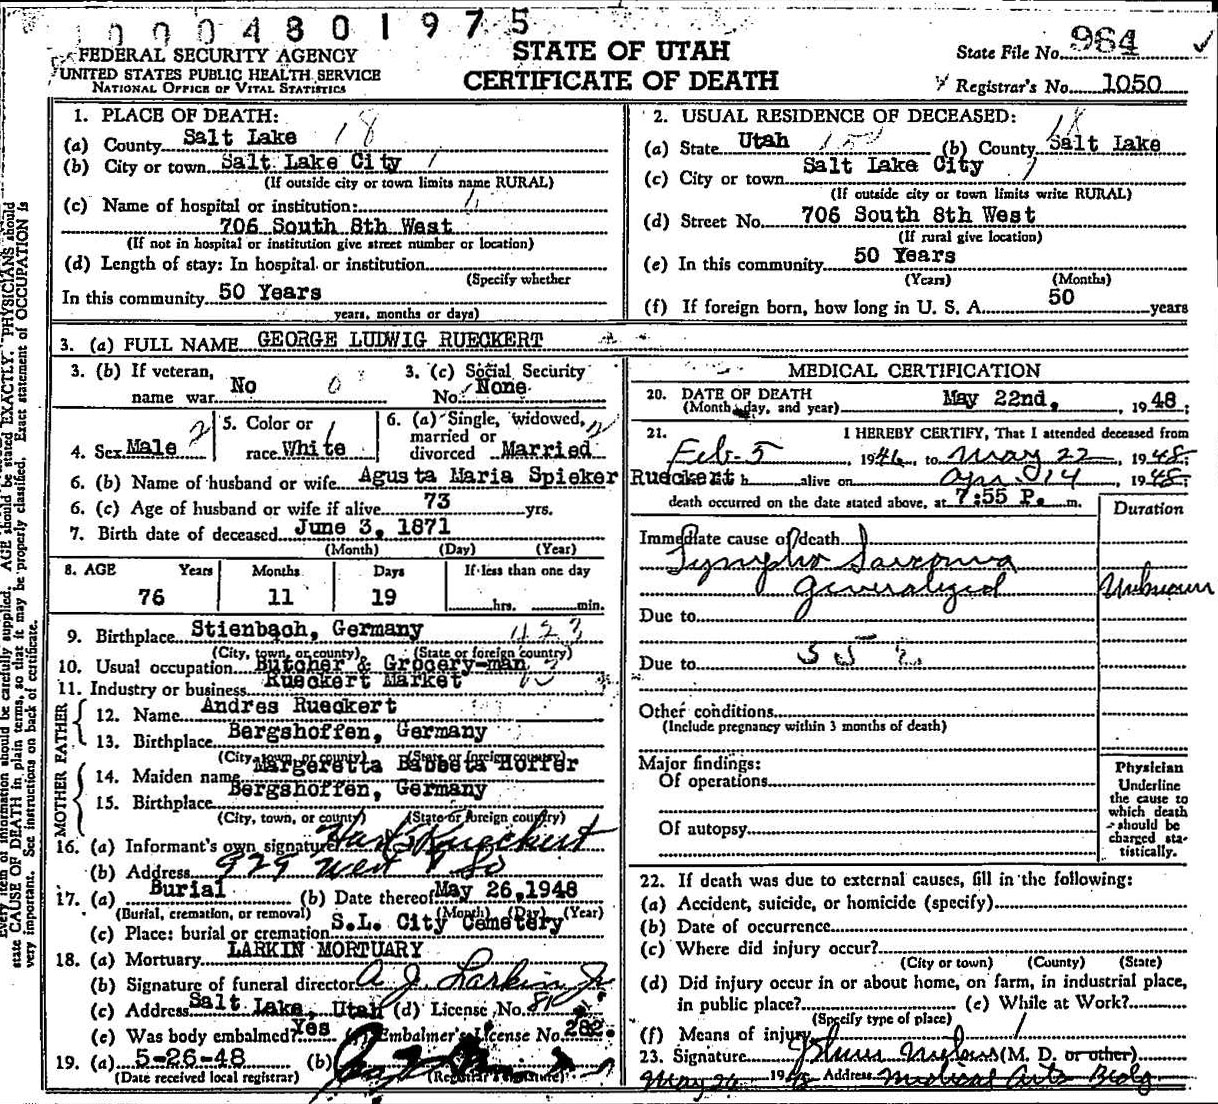 10004801975
FEDERAL SECURITY AGENCY
UNITED STATES PUBLIC HEALTH SERVICE
NATIONAL OFFICE OF VITAL STATISTICS
STATE OF UTAH
CERTIFICATE OF DEATH
State File No. 964
Registrar's No. 1050
1. PLACE OF DEATH:
(a) County Salt Lake 18
(b) City or town Salt Lake City 1
(If outside city or town limits name RURAL)
(c) Name of hospital or institution:
706 South 8th West
(If not in hospital or institution give street number or location)
(d) Length of stay: In hospital or institution
(Specify whether
In this community 50 Years
years, months or days)
2. USUAL RESIDENCE OF DECEASED:
(a) State Utah (b) County Salt Lake 18
(c) City or town Salt Lake City
(If outside city or town limits write RURAL)
(d) Street No. 706 South 8th West
(If rural give location)
(e) In this community 50 Years
(Years) (Months)
(f) If foreign born, how long in U. S. A. 50 years
3. (a) FULL NAME GEORGE LUDWIG RUECKERT
3. (b) If veteran, name war No 3. (c) Social Security No. None
4. Sex Male 2 5. Color or race White 1 6. (a) Single, widowed, married or divorced Married
6. (b) Name of husband or wife Agusta Maria Spieker Rueckert
6. (c) Age of husband or wife if alive 73 yrs.
7. Birth date of deceased June 3, 1871
(Month) (Day) (Year)
8. AGE Years Months Days If less than one day
76 11 19 hrs. min.
9. Birthplace Stienbach, Germany 423
(City, town, or county) (State or foreign country)
10. Usual occupation Butcher & Grocery-man
11. Industry or business Rueckert Market
FATHER
12. Name Andres Rueckert
13. Birthplace Bergshoffen, Germany
(City, town, or county) (State or foreign country)
MOTHER
14. Maiden name Margeretta Babbeta Hoffer
15. Birthplace Bergshoffen, Germany
(City, town, or county) (State or foreign country)
16. (a) Informant's own signature Rueckert
(b) Address 929 West So
17. (a) Burial (b) Date thereof May 26, 1948
(Burial, cremation, or removal) (Month) (Day) (Year)
(c) Place: burial or cremation S.L. City Cemetery
18. (a) Mortuary LARKIN MORTUARY
(b) Signature of funeral director A J Larkin Jr
(c) Address Salt Lake, Utah (d) License No. 81
(e) Was body embalmed? Yes Embalmer's License No. 282
19. (a) 5-26-48 (b)
(Date received local registrar) (Registrar's signature)
MEDICAL CERTIFICATION
20. DATE OF DEATH
(Month, day, and year) May 22nd, , 1948;
21. I HEREBY CERTIFY, That I attended deceased from
Feb-5, 1946, to May 22, 1948;
h alive on Apr. 14, 1948;
death occurred on the date stated above, at 7:55 P. m.
Duration
Immediate cause of death
Lympho Sarcoma
generalized Unknown
Due to
Due to 55
Other conditions
(Include pregnancy within 3 months of death)
Major findings:
Of operations
Of autopsy
Physician
Underline
the cause to
which death
should be
charged sta-
tistically.
22. If death was due to external causes, fill in the following:
(a) Accident, suicide, or homicide (specify)
(b) Date of occurrence
(c) Where did injury occur?
(City or town) (County) (State)
(d) Did injury occur in or about home, on farm, in industrial place,
in public place? (e) While at Work?
(Specify type of place)
(f) Means of injury
23. Signature (M. D. or other)
May 26 1948 Address Medical Arts Bldg
Every item of information should be carefully supplied. AGE should be stated EXACTLY. PHYSICIANS should
state CAUSE OF DEATH in plain terms, so that it may be properly classified. Exact statement of OCCUPATION is
very important. See instructions on back of certificate.